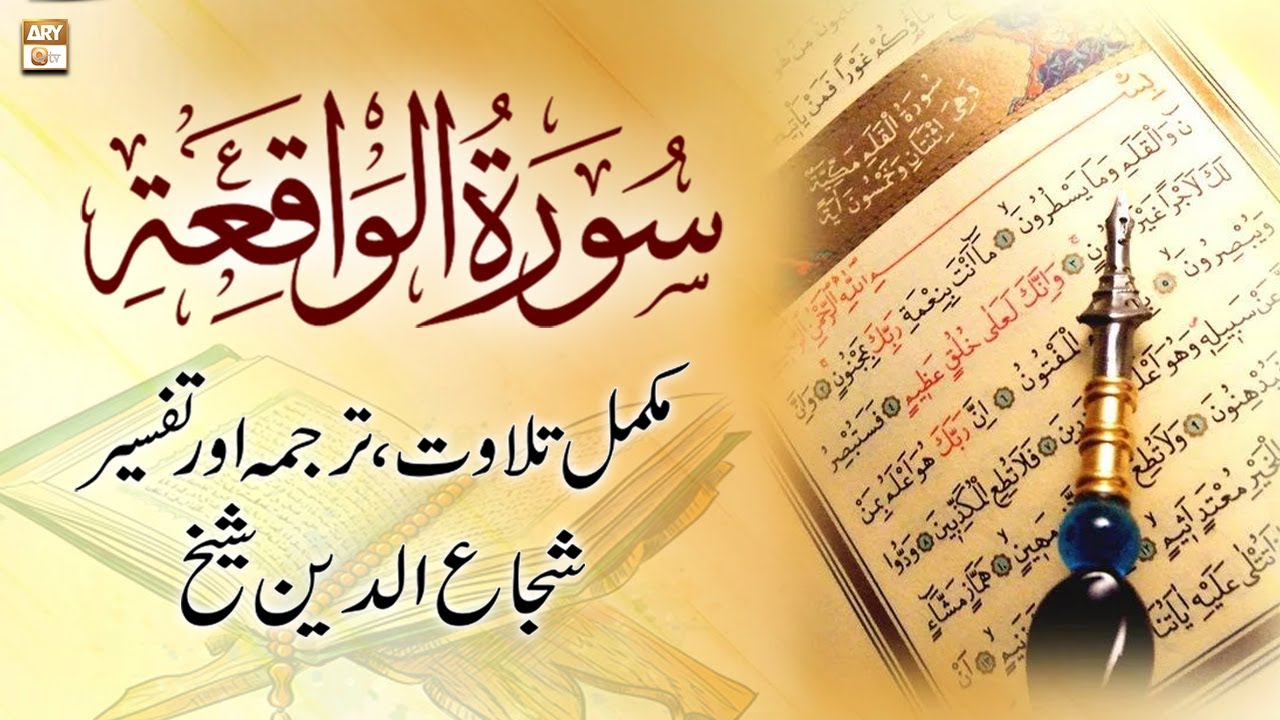 ARY
Qtv
سُورَةُ الْوَاقِعَةِ
مکمل تلاوت، ترجمہ اور تفسیر
شجاع الدین شیخ
سُورَةُ الْقَلَمِ مَكِّيَّةٌ
وَهِيَ اثْنَتَانِ وَخَمْسُونَ آيَةً
نٓ وَالْقَلَمِ وَمَا يَسْطُرُونَ ١ مَا أَنْتَ بِنِعْمَةِ رَبِّكَ بِمَجْنُونٍ ٢ وَإِنَّ
لَكَ لَأَجْرًا غَيْرَ ٣ وَإِنَّكَ لَعَلَى خُلُقٍ عَظِيمٍ ٤ فَسَتُبْصِرُ
وَيُبْصِرُونَ ٥ الْمَفْتُونُ ٦ إِنَّ رَبَّكَ هُوَ أَعْلَمُ بِمَنْ
عَنْ سَبِيلِهِ وَهُوَ أَعْلَمُ فَلَا تُطِعِ الْمُكَذِّبِينَ ٨ وَدُّوا
فَيُدْهِنُونَ ٩ وَلَا تُطِعْ مَهِينٍ ١٠ هَمَّازٍ مَشَّاءٍ
لِلْخَيْرِ مُعْتَدٍ أَثِيمٍ ١٢ زَنِيمٍ ١٣ أَنْ
تُتْلَى عَلَيْهِ آيَاتُنَا